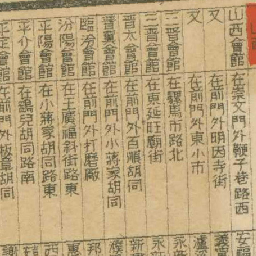 山西會館 在崇文門外鞭子巷路西
又 在前門外明因寺街
又 在前門外東小市
三晉會館 在騾馬市路北
三晉會館 在
晉太會館 在前門外百順胡同
晉冀會館 在前門外小蔣家胡同
臨汾會館 在前門外打磨廠
汾陽會館 在王廣福斜街路東
平陽會館 在小蔣家胡同路東
平介會館 在鷂兒胡同路南
平定會館 在前門外板章胡同